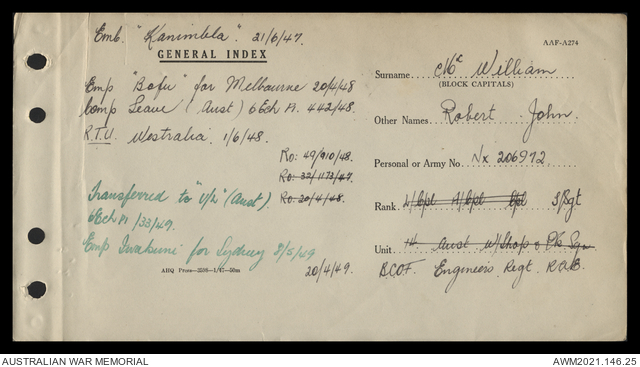 Emb. "Kanimbla". 21/6/47.
GENERAL INDEX
AAF-A274
Emp "Bofu" for Melbourne 20/4/48
Comp Leave (Aust) 6 Ech A. 442/48.
R.T.U. Westralia. 1/6/48.
Ro: 49/910/48.
Ro: 32/1173/47.
Ro: 20/4/48.
Transferred to "1/2" (Aust).
6Ech A /33/49.
Emp Iwakuni for Sydney 8/5/49
20/4/49.
AHQ Press—3598—1/47—50m
Surname Mc William
(BLOCK CAPITALS)
Other Names Robert John.
Personal or Army No. Nx 206972
Rank L/Cpl A/Cpl Cpl S/Sgt
Unit Aust W/Shop & Pk Sqn
BCOF. Engineers Regt.
AUSTRALIAN WAR MEMORIAL
AWM2021.146.25